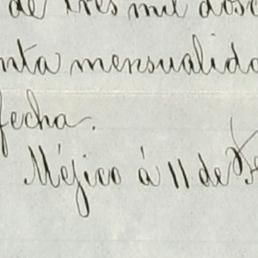 de tres mil dosc
nta mensualida
fecha.
Méjico á 11 de